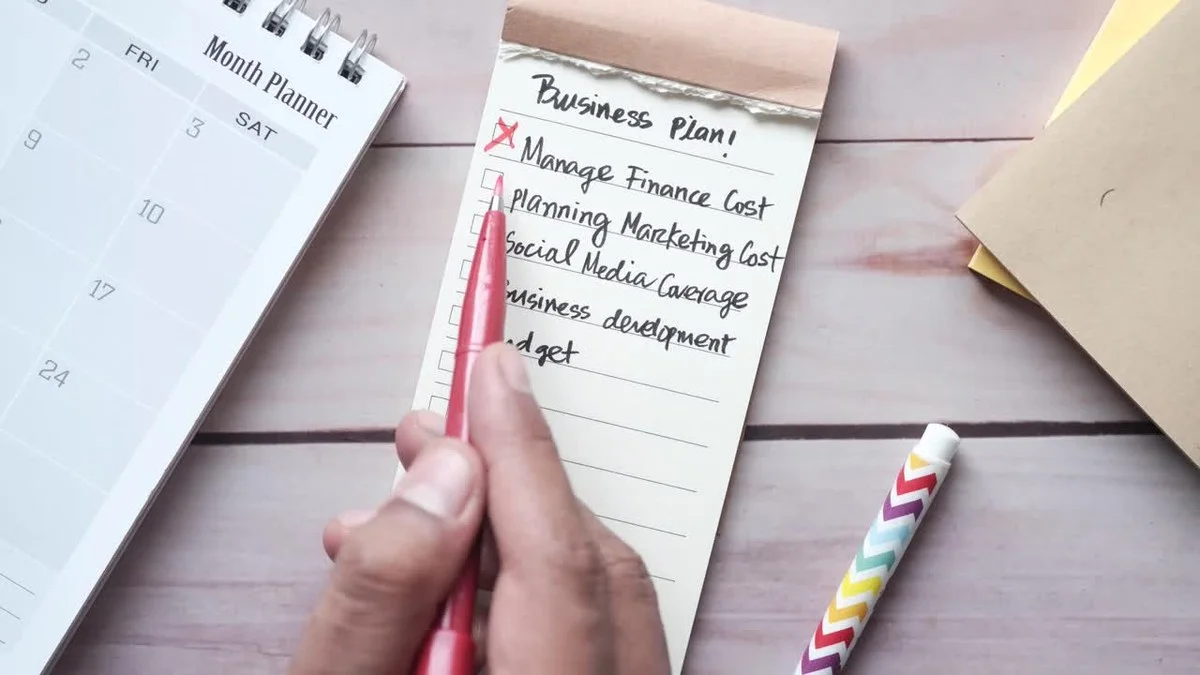 Month Planner
FRI
SAT
2
3
9
10
17
24
Business Plan!
Manage Finance Cost
Planning Marketing Cost
Social Media Coverage
Business development